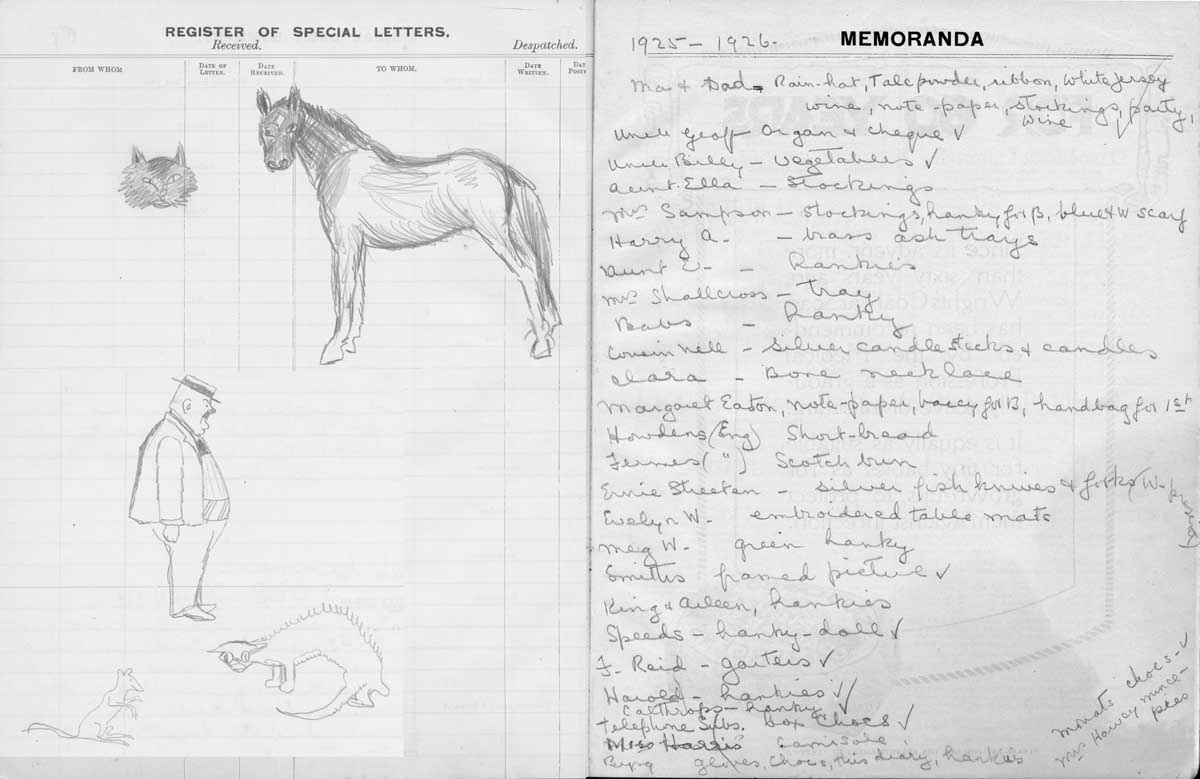 REGISTER OF SPECIAL LETTERS.
Received. Despatched.
FROM WHOM DATE OF LETTER. DATE RECEIVED. TO WHOM. DATE WRITTEN. DAY POSTE
1925 – 1926. MEMORANDA
Ma & Dad. Rain-hat, Talc powder, ribbon, White jersey
wine, note-paper, stockings, party,
wine
Uncle Geoff Organ & cheque ✓
Uncle Billy – vegetables ✓
Aunt Ella – Stockings
Mrs Sampson – stockings, hanky for B, blue & W scarf
Harry A. – brass ash trays
Aunt E. – Hankies
Mrs Shallcross – tray
Babs – hanky
Cousin Nell – silver candlesticks & candles
Clara – Bone necklace
Margaret Eaton, note-paper, baccy for B, handbag for 1st
Howdens (Eng) Short-bread
(") Scotch bun
Ernie Streeten – silver fish knives & forks (W-
Evelyn W. embroidered table mats
Meg W. green hanky
Smiths framed picture ✓
King & Aileen, hankies
Speeds – hanky-doll ✓
F. Reid – garters ✓
Harold – hankies ✓
Calthrops – hanky
Telephone Subs. box chocs ✓
Miss Harris camisole
Byng gloves, chocs, this diary, hankies
chocs – ✓
Mrs Harvey mince-
pies